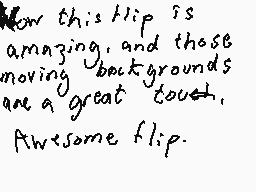 Now this flip is
amazing, and those
moving backgrounds
are a great touch.
Awesome flip.